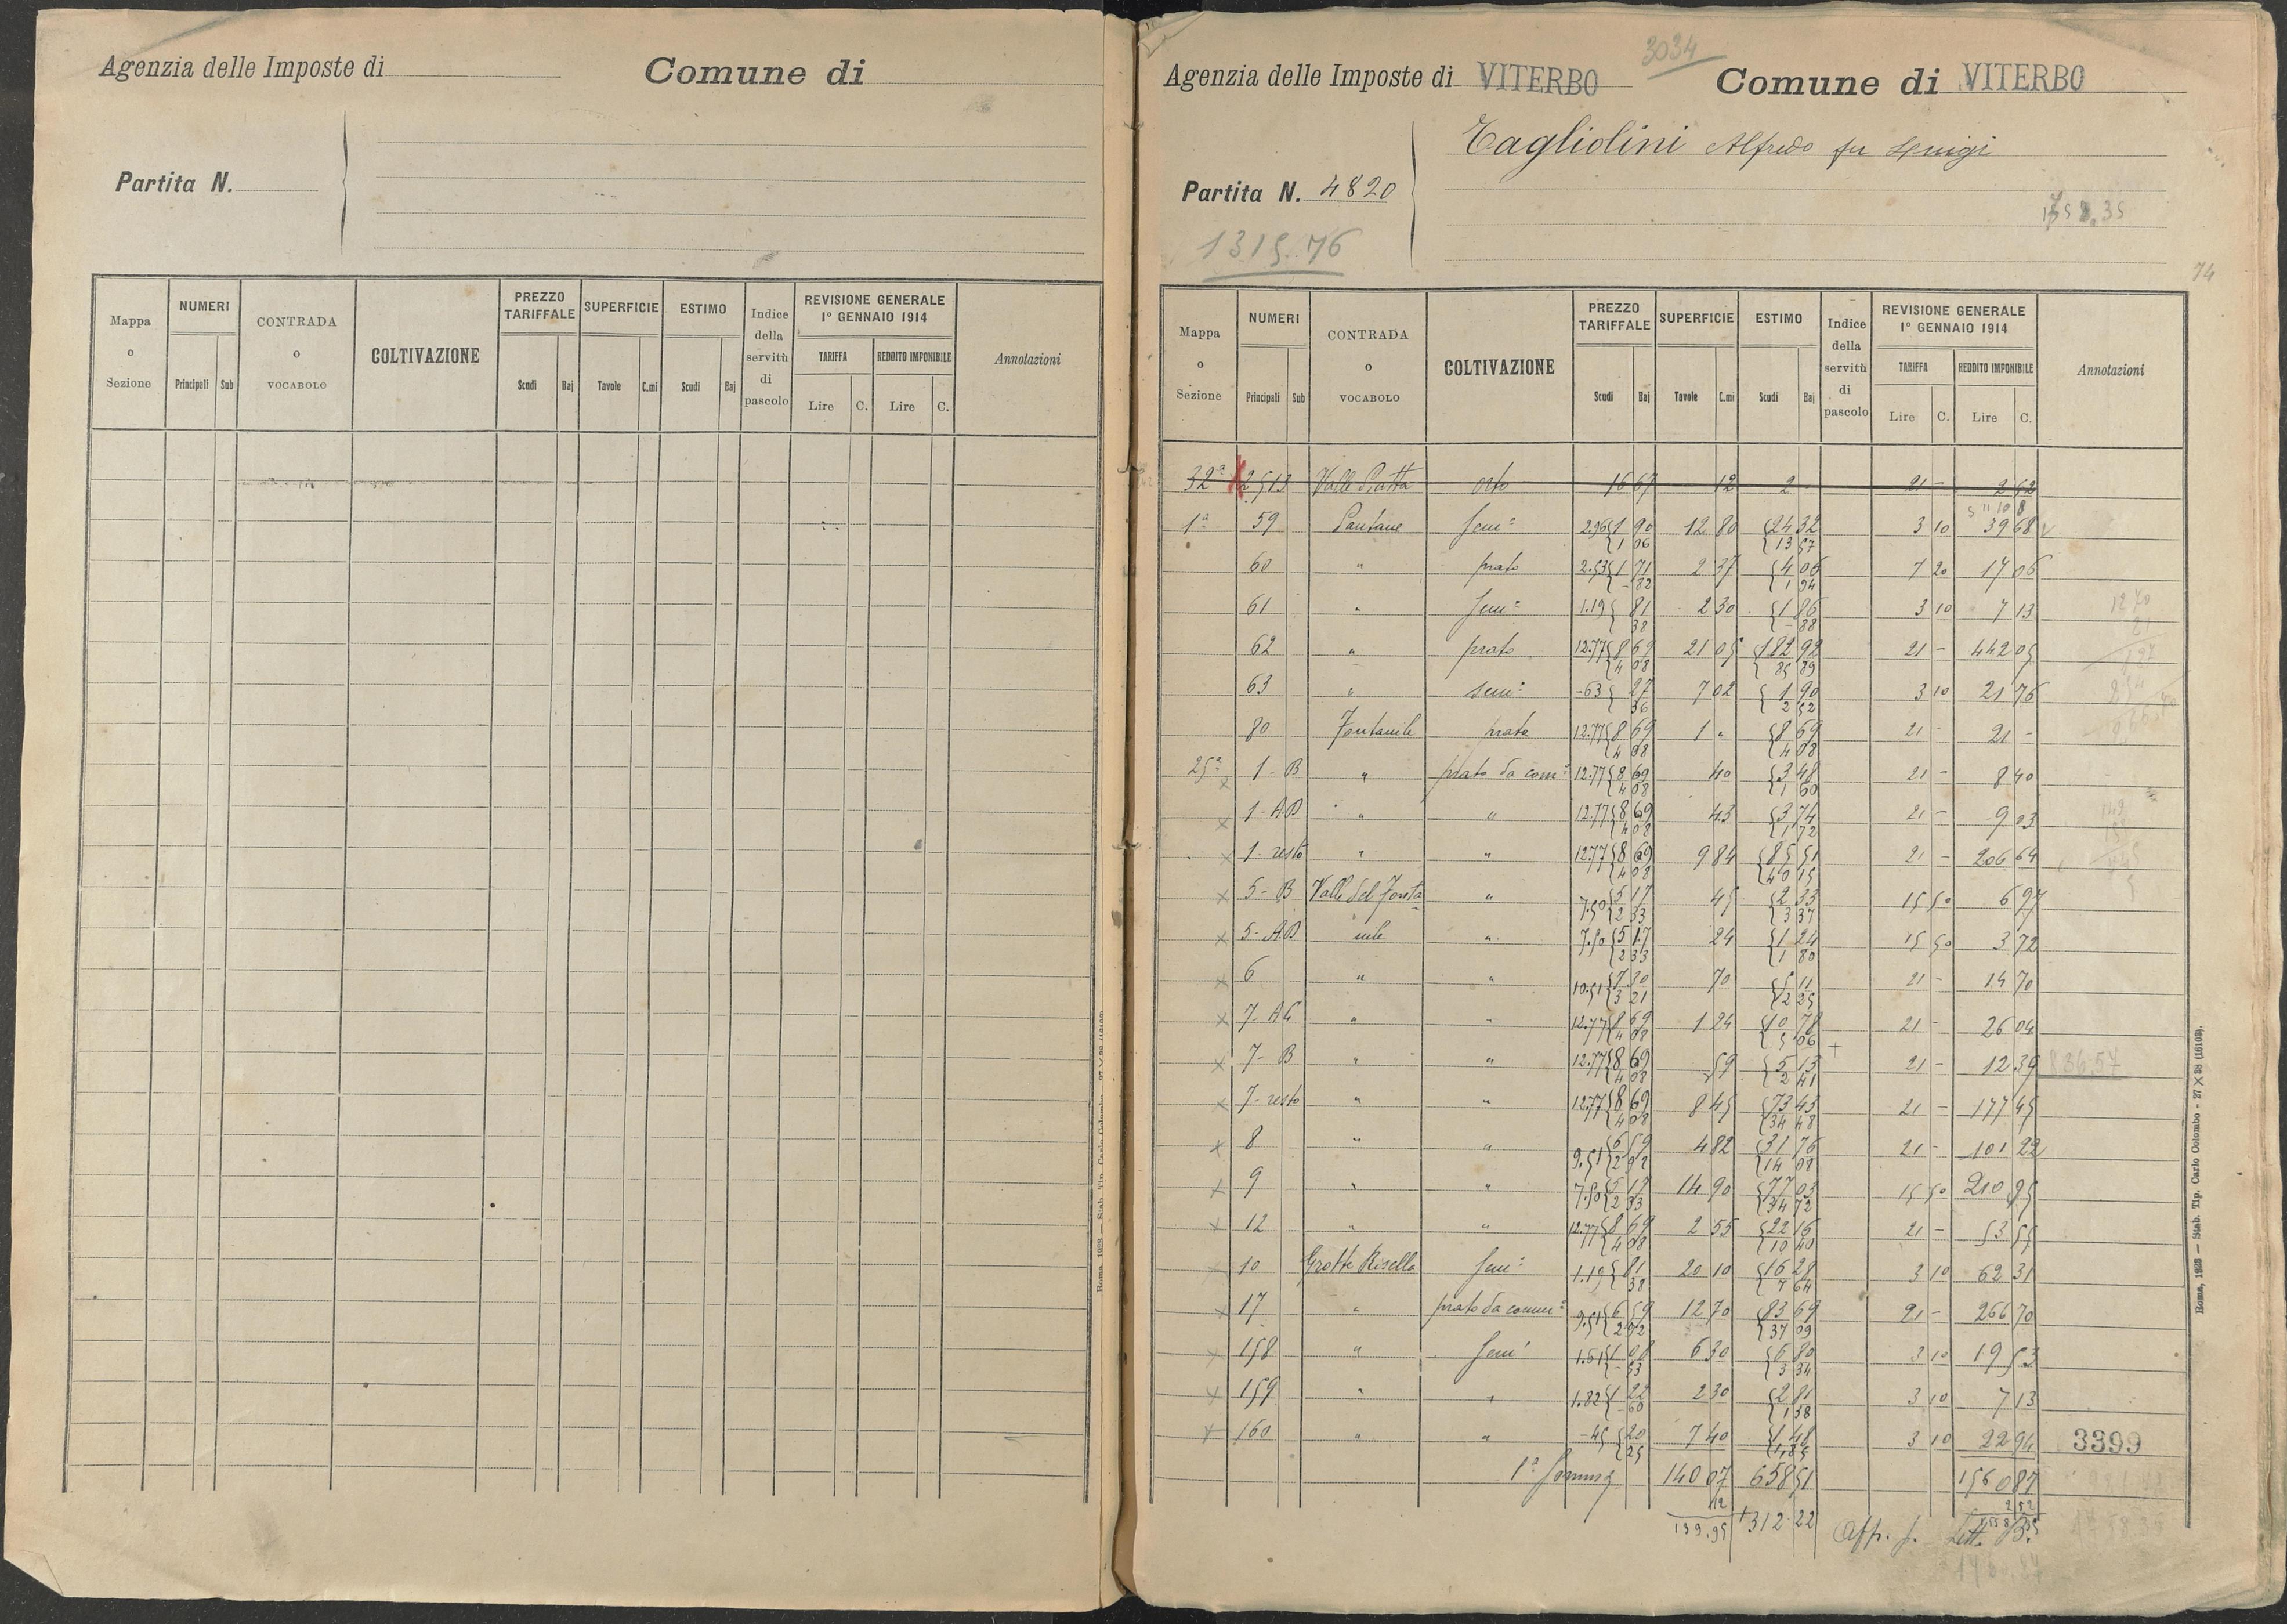 Agenzia delle Imposte di
Comune di
Partita N.
Mappa o Sezione
NUMERI
Principali Sub
CONTRADA o VOCABOLO
COLTIVAZIONE
PREZZO TARIFFALE
Scudi Baj
SUPERFICIE
Tavole C.mi
ESTIMO
Scudi Baj
Indice della servitù di pascolo
REVISIONE GENERALE
1° GENNAIO 1914
TARIFFA
Lire C.
REDDITO IMPONIBILE
Lire C.
Annotazioni
3034
Agenzia delle Imposte di VITERBO
Comune di VITERBO
Tagliolini Alfredo fu Luigi
Partita N. 4820
1315.76
74
Mappa o Sezione
NUMERI
Principali Sub
CONTRADA o VOCABOLO
COLTIVAZIONE
PREZZO TARIFFALE
Scudi Baj
SUPERFICIE
Tavole C.mi
ESTIMO
Scudi Baj
Indice della servitù di pascolo
REVISIONE GENERALE
1° GENNAIO 1914
TARIFFA
Lire C.
REDDITO IMPONIBILE
Lire C.
Annotazioni
32ª 2513 Valle Piatta orto 16 67 12 2 21 - 2 52
1ª 59 Pantane Semº 2.96 { 1 90 12 80 { 24 32 3 10 39 68
{ 1 06 { 13 57
60 " prato 2.53 { 1 71 2 37 { 4 06 7 20 17 06
{ - 82 { 1 94
61 " Semº 1.19 { 81 2 30 { 1 86 3 10 7 13
{ 38 { - 88
62 " prato 12.77 { 8 69 21 05 { 182 92 21 - 442 05
{ 4 08 { 85 89
63 " semº -63 { 27 7 02 { 1 90 3 10 21 76
{ 36 { 2 52
80 Fontanile prato 12.77 { 8 69 1 " { 8 69 21 - 21 -
{ 4 08 { 4 08
25ª x 1 - B " prato da comº 12.77 { 8 69 40 { 3 48 21 - 8 40
{ 4 08 { 1 60
x 1 - AB " " 12.77 { 8 69 43 { 3 74 21 - 9 03
{ 4 08 { 1 72
x 1 - resto " " 12.77 { 8 69 9 84 { 85 51 21 - 206 64
{ 4 08 { 40 15
x 5 - B Valle del Fonta- " 7.50 { 5 17 45 { 2 33 15 50 6 97
{ 2 33 { 3 37
x 5 - AB nile " 7.50 { 5 17 24 { 1 24 15 50 3 72
{ 2 33 { 1 80
x 6 " " 10.51 { 7 30 70 { 5 11 21 - 14 70
{ 3 21 { 2 25
x 7 - AC " " 12.77 { 8 69 1 24 { 10 78 21 - 26 04
{ 4 08 { 5 06
x 7 - B " " 12.77 { 8 69 59 { 5 13 21 - 12 39 836.57
{ 4 08 { 2 41
x 7 - resto " " 12.77 { 8 69 8 45 { 73 43 21 - 177 45
{ 4 08 { 34 48
x 8 " " 9.51 { 6 59 4 82 { 31 76 21 - 101 22
{ 2 92 { 14 08
x 9 " " 7.50 { 5 17 14 90 { 77 03 15 50 210 95
{ 2 33 { 34 72
x 12 " " 12.77 { 8 69 2 55 { 22 16 21 - 53 55
{ 4 08 { 10 40
x 10 Grotte Risella Semº 1.19 { 81 20 10 { 16 28 3 10 62 31
{ 38 { 7 64
x 17 " prato da comunº 9.51 { 6 59 12 70 { 83 69 21 - 266 70
{ 2 92 { 37 09
x 158 " Semº 1.61 { 1 08 6 30 { 6 80 3 10 19 53
{ - 53 { 3 34
x 159 " " 1.82 { 1 22 2 30 { 2 81 3 10 7 13
{ - 60 { 1 38
x 160 " " -45 { 20 7 40 { 1 48 3 10 22 94 3399
{ 25 { 1 85
1ª Somma 140 07 658 51 1560 87
12 2 52
139.95 +312.22 Lett. B.
Roma, 1923 — Stab. Tip. Carlo Colombo - 27 X 38 (16103).